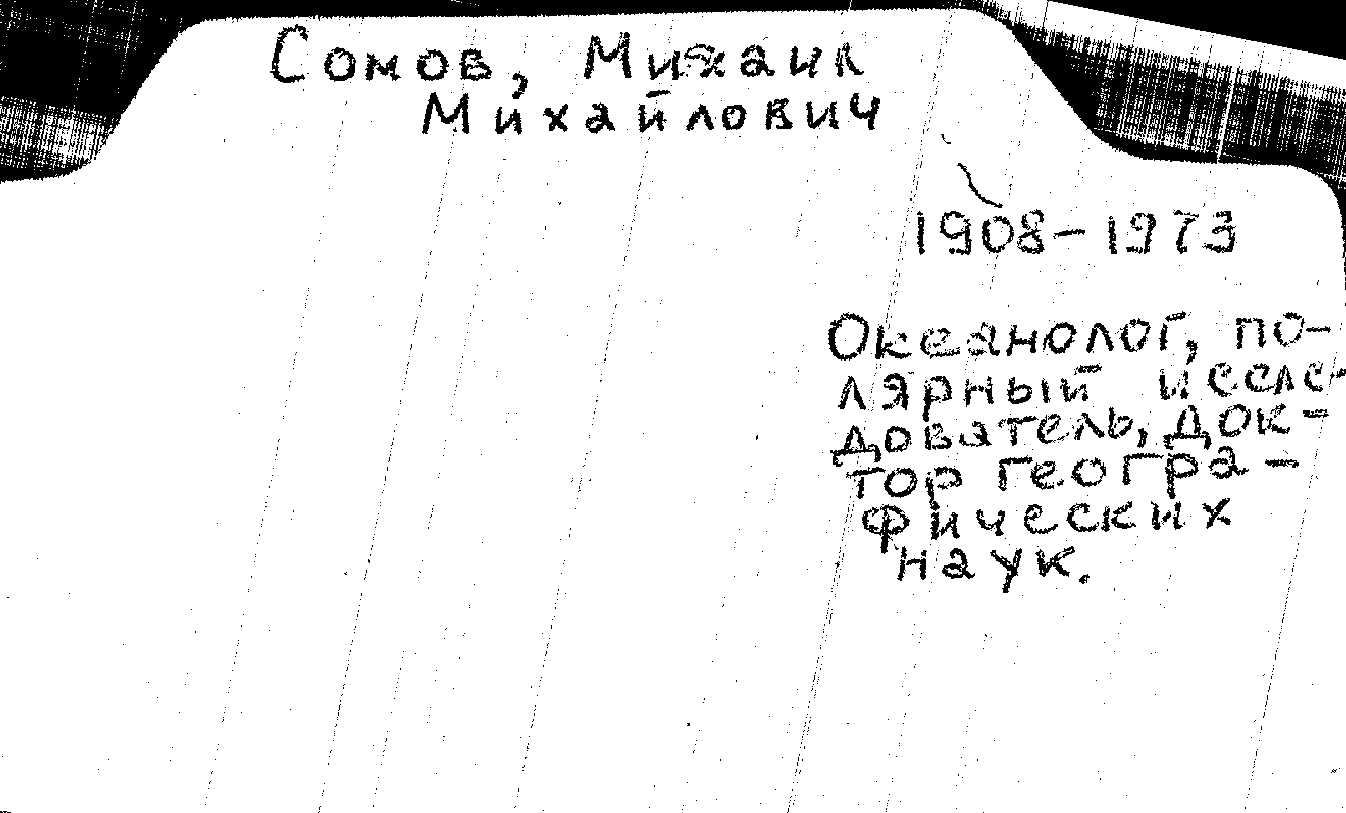 Сомов, Михаил
Михайлович
1908-1973
Океанолог, по-
лярный иссле-
дователь, док-
тор геогра-
фических
наук.